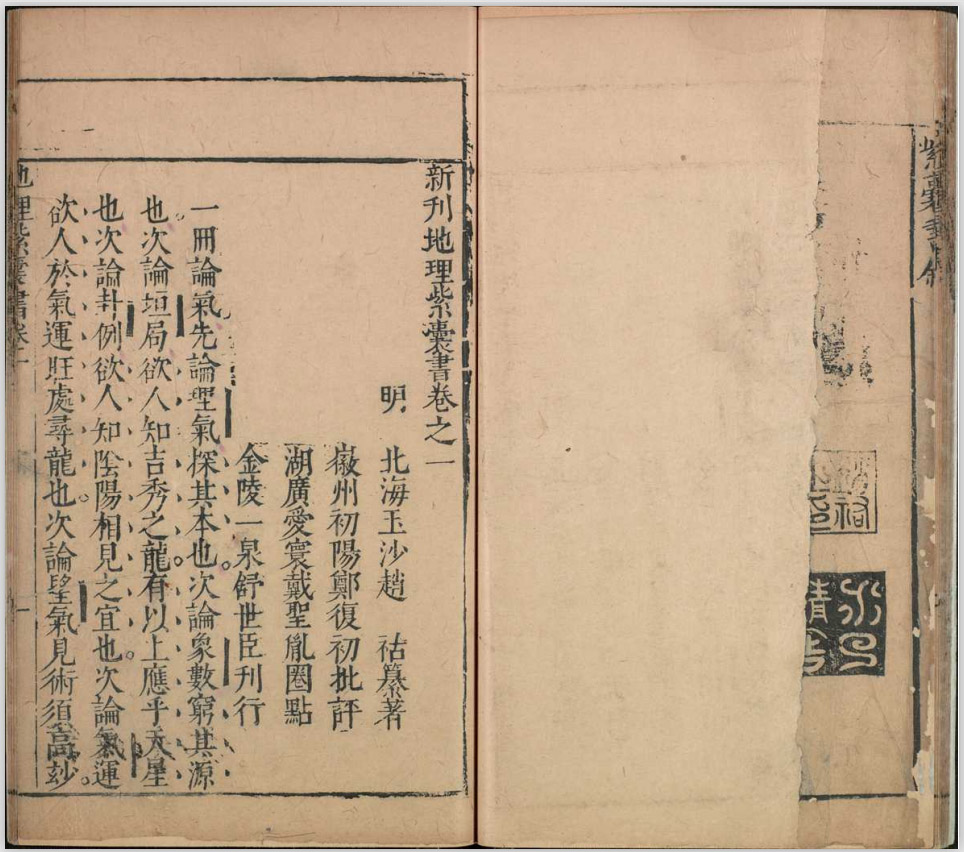 紫囊書敘
新刊地理紫囊書卷之一
明 北海玉沙趙 祜纂著
徽州初陽鄭復初批評
湖廣愛寰戴聖胤圈點
金陵一泉舒世臣刊行
一冊論氣先論理氣探其本也次論象數窮其源
也次論垣局欲人知吉秀之龍有以上應乎天星
也次論卦例欲人知陰陽相見之宜也次論氣運
欲人於氣運旺處尋龍也次論望氣見術須高玅
地理紫囊書卷一
一